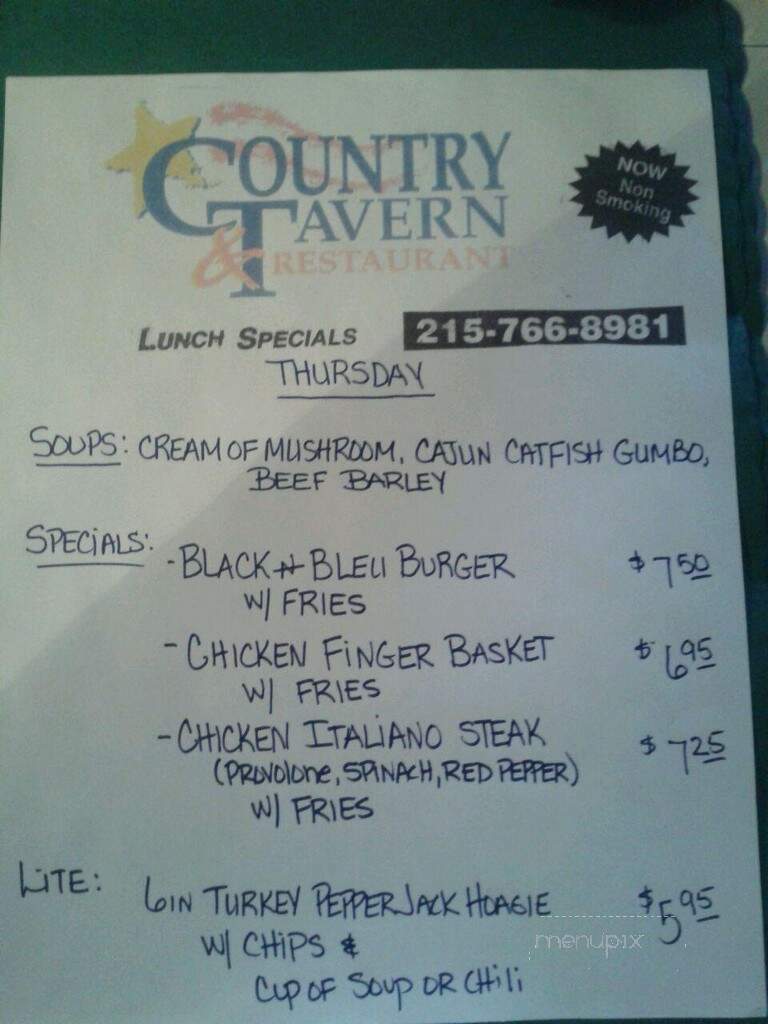 COUNTRY
TAVERN
& RESTAURANT
NOW
Non
Smoking
LUNCH SPECIALS 215-766-8981
THURSDAY
SOUPS: CREAM OF MUSHROOM, CAJUN CATFISH GUMBO,
BEEF BARLEY
SPECIALS:
- BLACK N BLEU BURGER $7.50
W/ FRIES
- CHICKEN FINGER BASKET $6.95
W/ FRIES
- CHICKEN ITALIANO STEAK $7.25
(PROVOLONE, SPINACH, RED PEPPER)
W/ FRIES
LITE: 6IN TURKEY PEPPERJACK HOAGIE $5.95
W/ CHIPS &
CUP OF SOUP OR CHILI
menupix